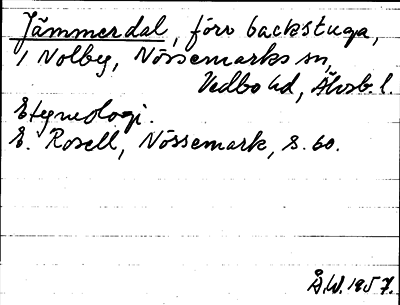 Jämmerdal, förr backstuga,
i Nolby, Nössemarks sn,
Vedbo hd, Älvsb. l.
Etymologi.
E. Rosell, Nössemark, s. 60.
Å.W. 1957.